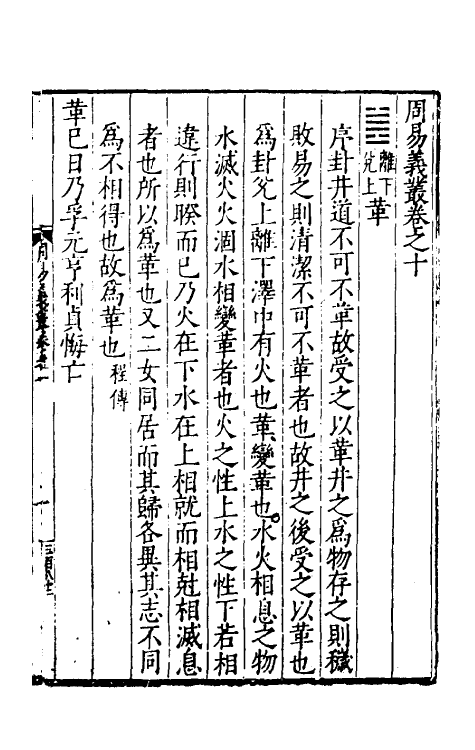 周易義叢卷之十
離下兌上革
序卦井道不可不革故受之以革井之爲物存之則穢
敗易之則清潔不可不革者也故井之後受之以革也
爲卦兌上離下澤中有火也革變革也水火相息之物
水滅火火涸水相變革者也火之性上水之性下若相
違行則睽而已乃火在下水在上相就而相尅相滅息
者也所以爲革也又二女同居而其歸各異其志不同
爲不相得也故爲革也程傳
革已日乃孚元亨利貞悔亡
周易義叢卷十